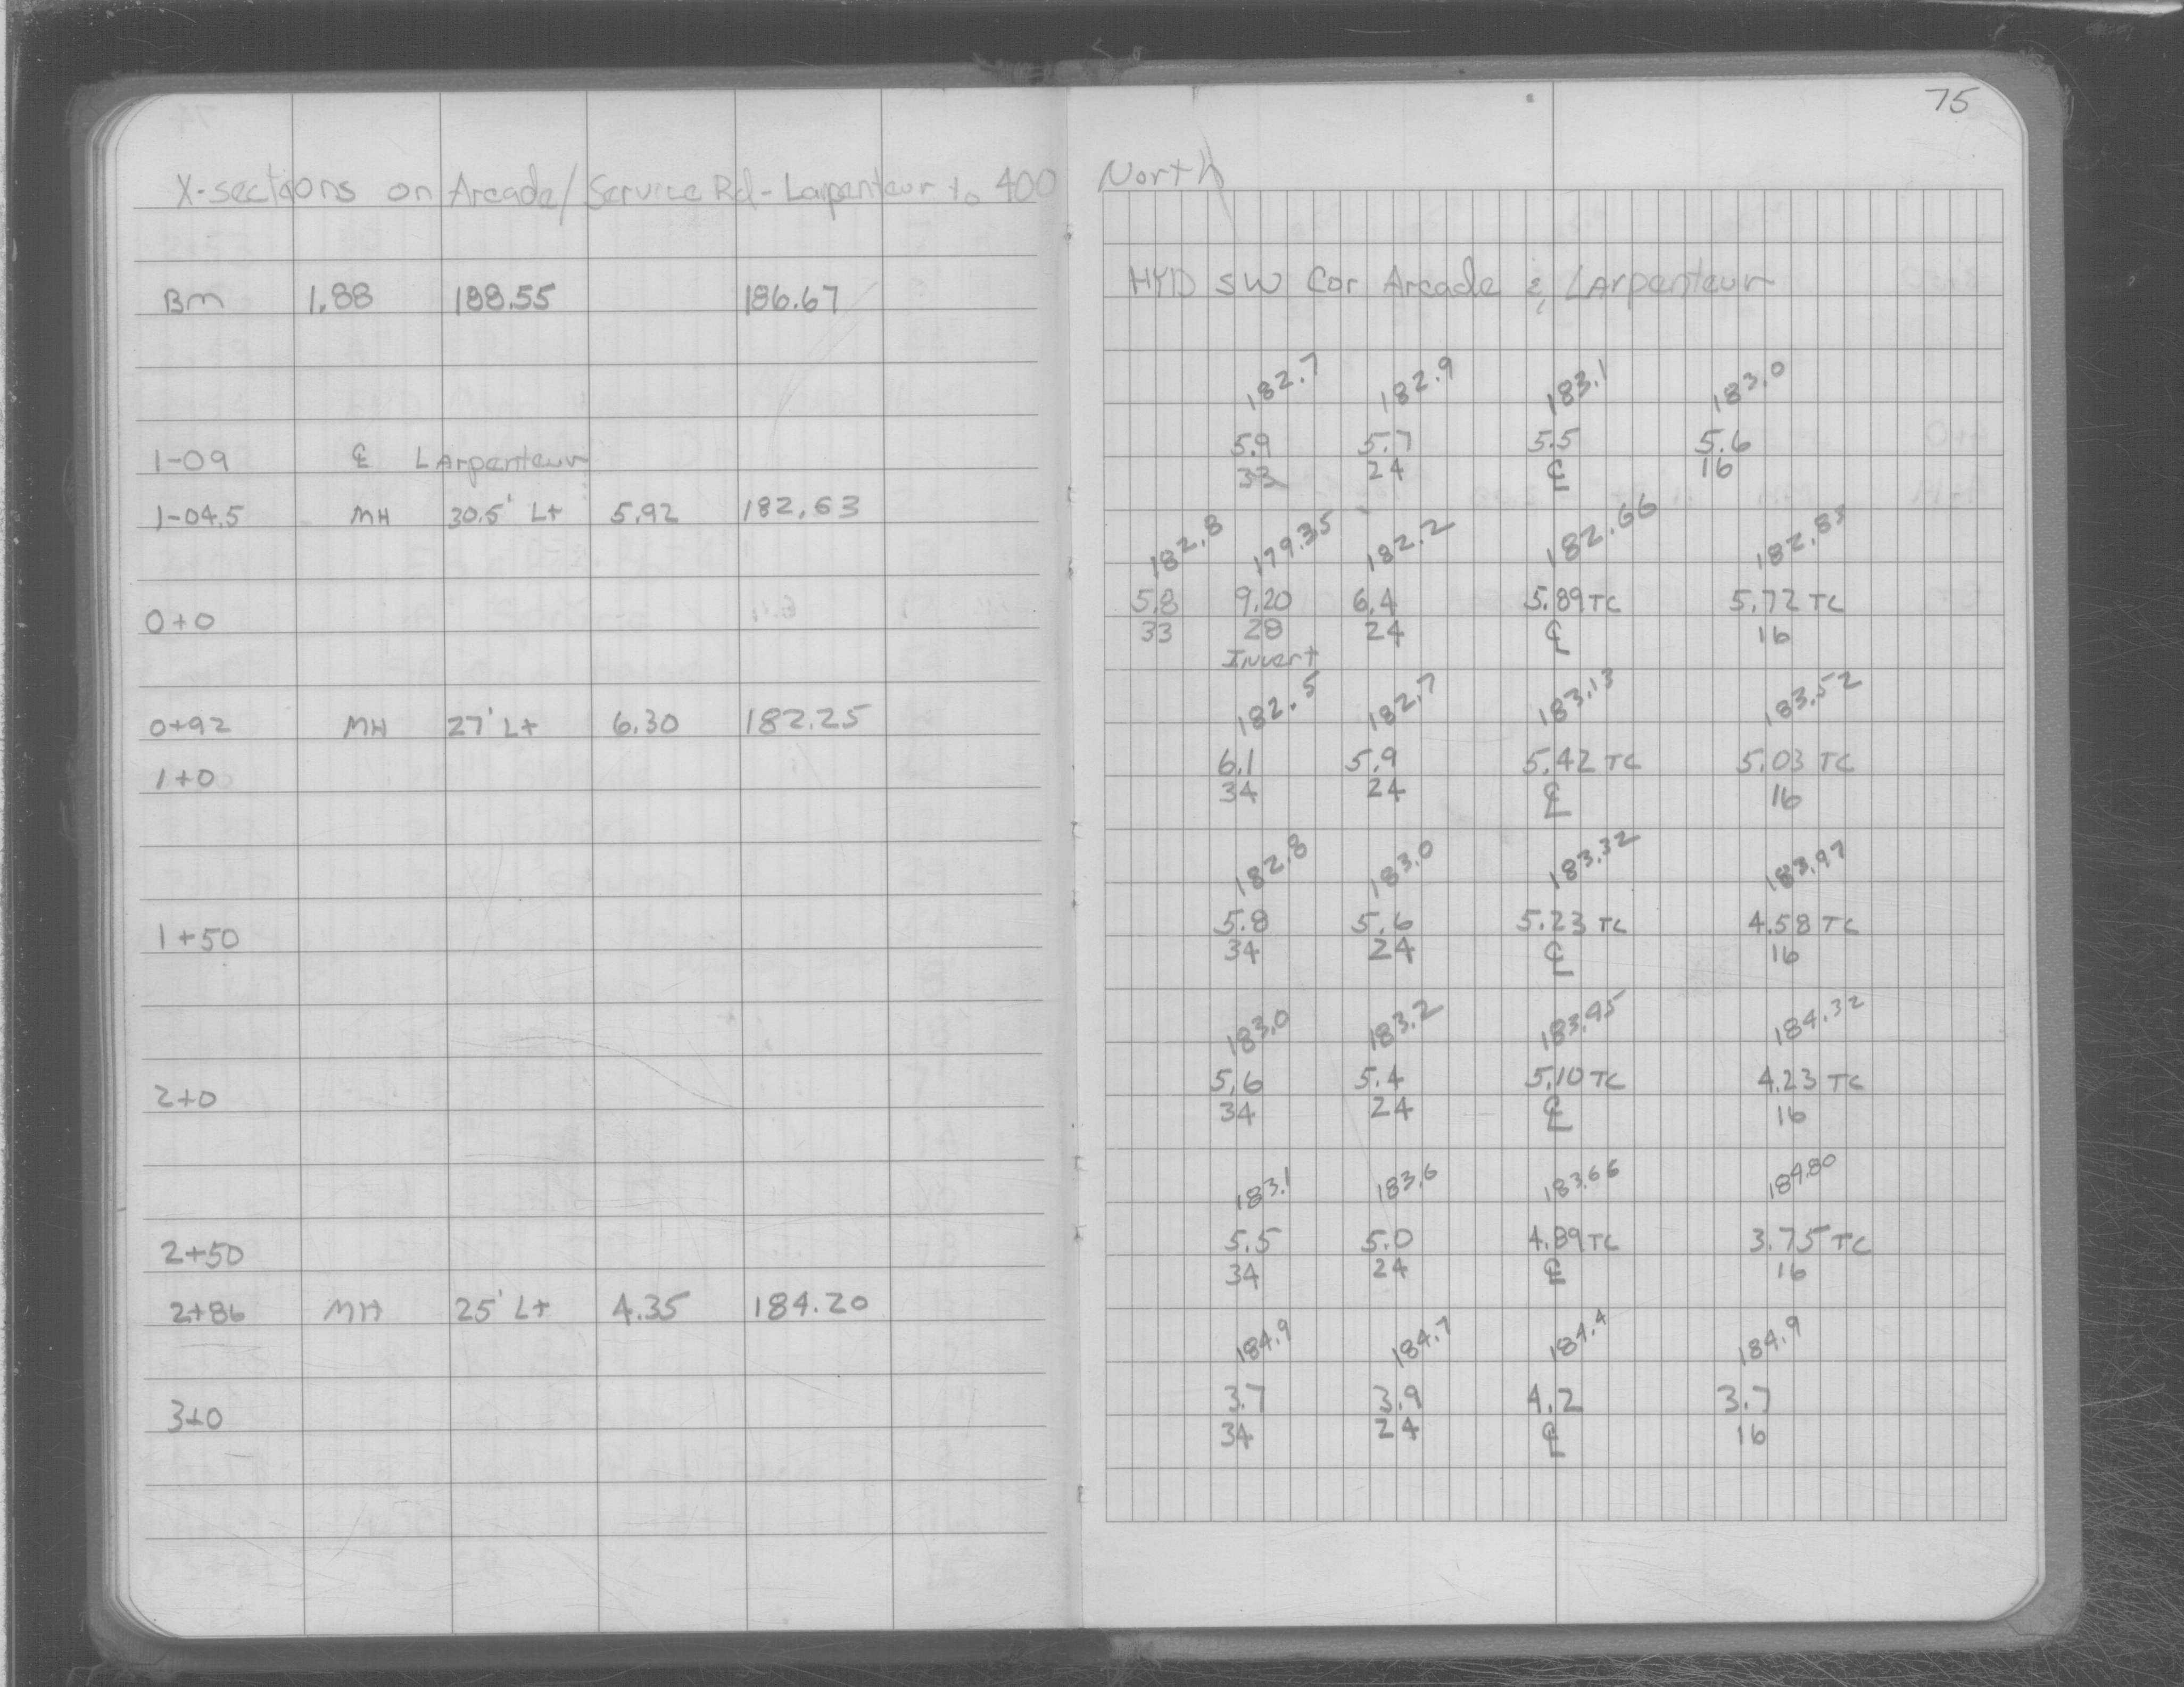 75
X-sections on Arcade/Service Rd-Larpenteur to 400 North
BM 1.88 188.55 186.67 HYD SW Cor Arcade & LArpenteur
182.7 182.9 183.1 183.0
5.9 5.7 5.5 5.6
1-09 ℄ LArpenteur 33 24 ℄ 16
1-04.5 MH 30.5' Lt 5.92 182.63
182.8 179.35 182.2 182.66 182.83
0+0 5.8 9.20 6.4 5.89 TC 5.72 TC
33 28 24 ℄ 16
Invert
182.5 182.7 183.13 183.52
0+92 MH 27' Lt 6.30 182.25
1+0 6.1 5.9 5.42 TC 5.03 TC
34 24 ℄ 16
182.8 183.0 183.32 183.97
1+50 5.8 5.6 5.23 TC 4.58 TC
34 24 ℄ 16
183.0 183.2 183.95 184.32
2+0 5.6 5.4 5.10 TC 4.23 TC
34 24 ℄ 16
183.1 183.6 183.66 184.80
2+50 5.5 5.0 4.89 TC 3.75 TC
34 24 ℄ 16
2+86 MH 25' Lt 4.35 184.20
184.9 184.7 184.4 184.9
3+0 3.7 3.9 4.2 3.7
34 24 ℄ 16